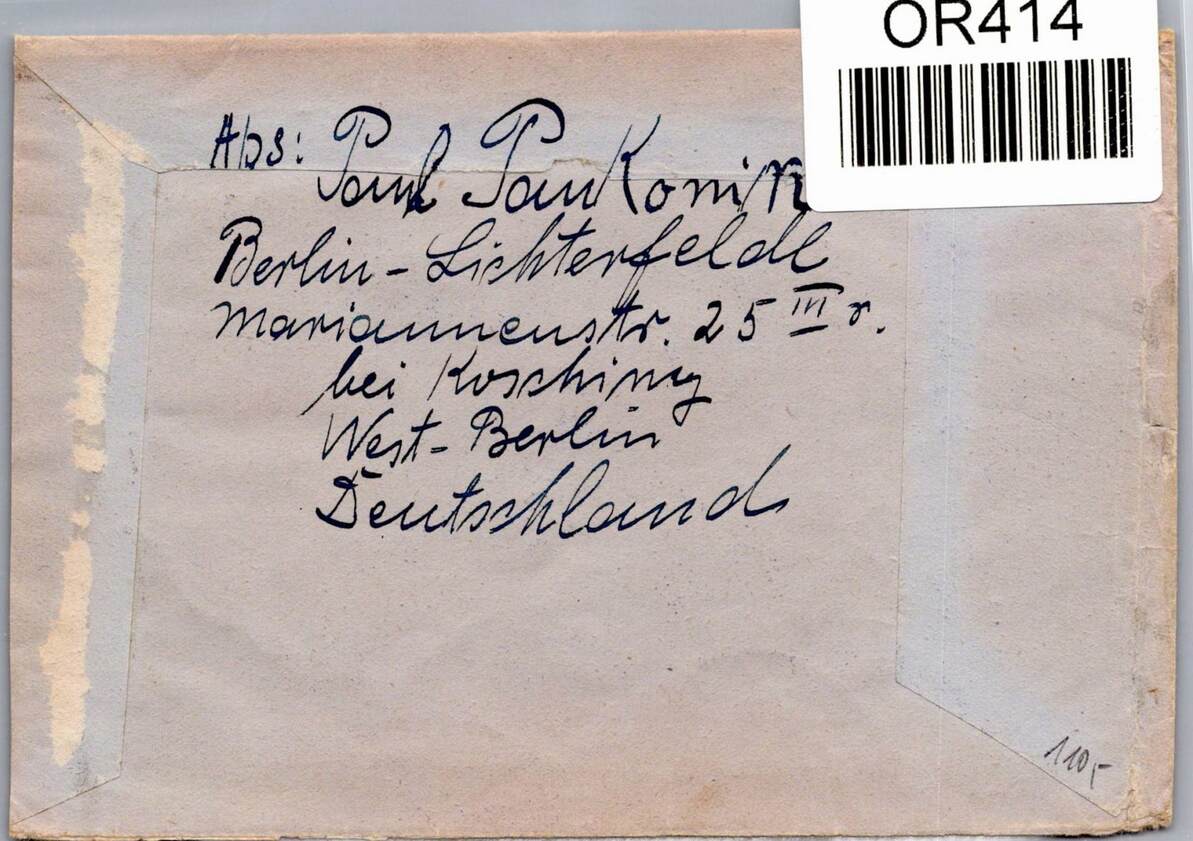 OR414
Abs: Paul Paukonin
Berlin-Lichterfelde
Mariannenstr. 25 III r.
bei Kosching
West-Berlin
Deutschland
110,-